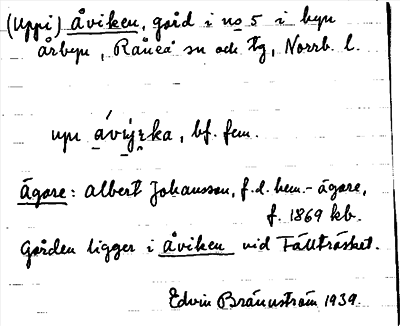 (Uppi) Åviken, gård i no 5 i byn
Årbyn, Råneå sn och tg, Norrb. l.
åvik̬a, bf. fem.
Ägare: Albert Johansson, f.d. hem.-ägare,
f. 1869 kb.
Gården ligger i Åviken vid Fällträsket.
Edvin Brännström 1939.